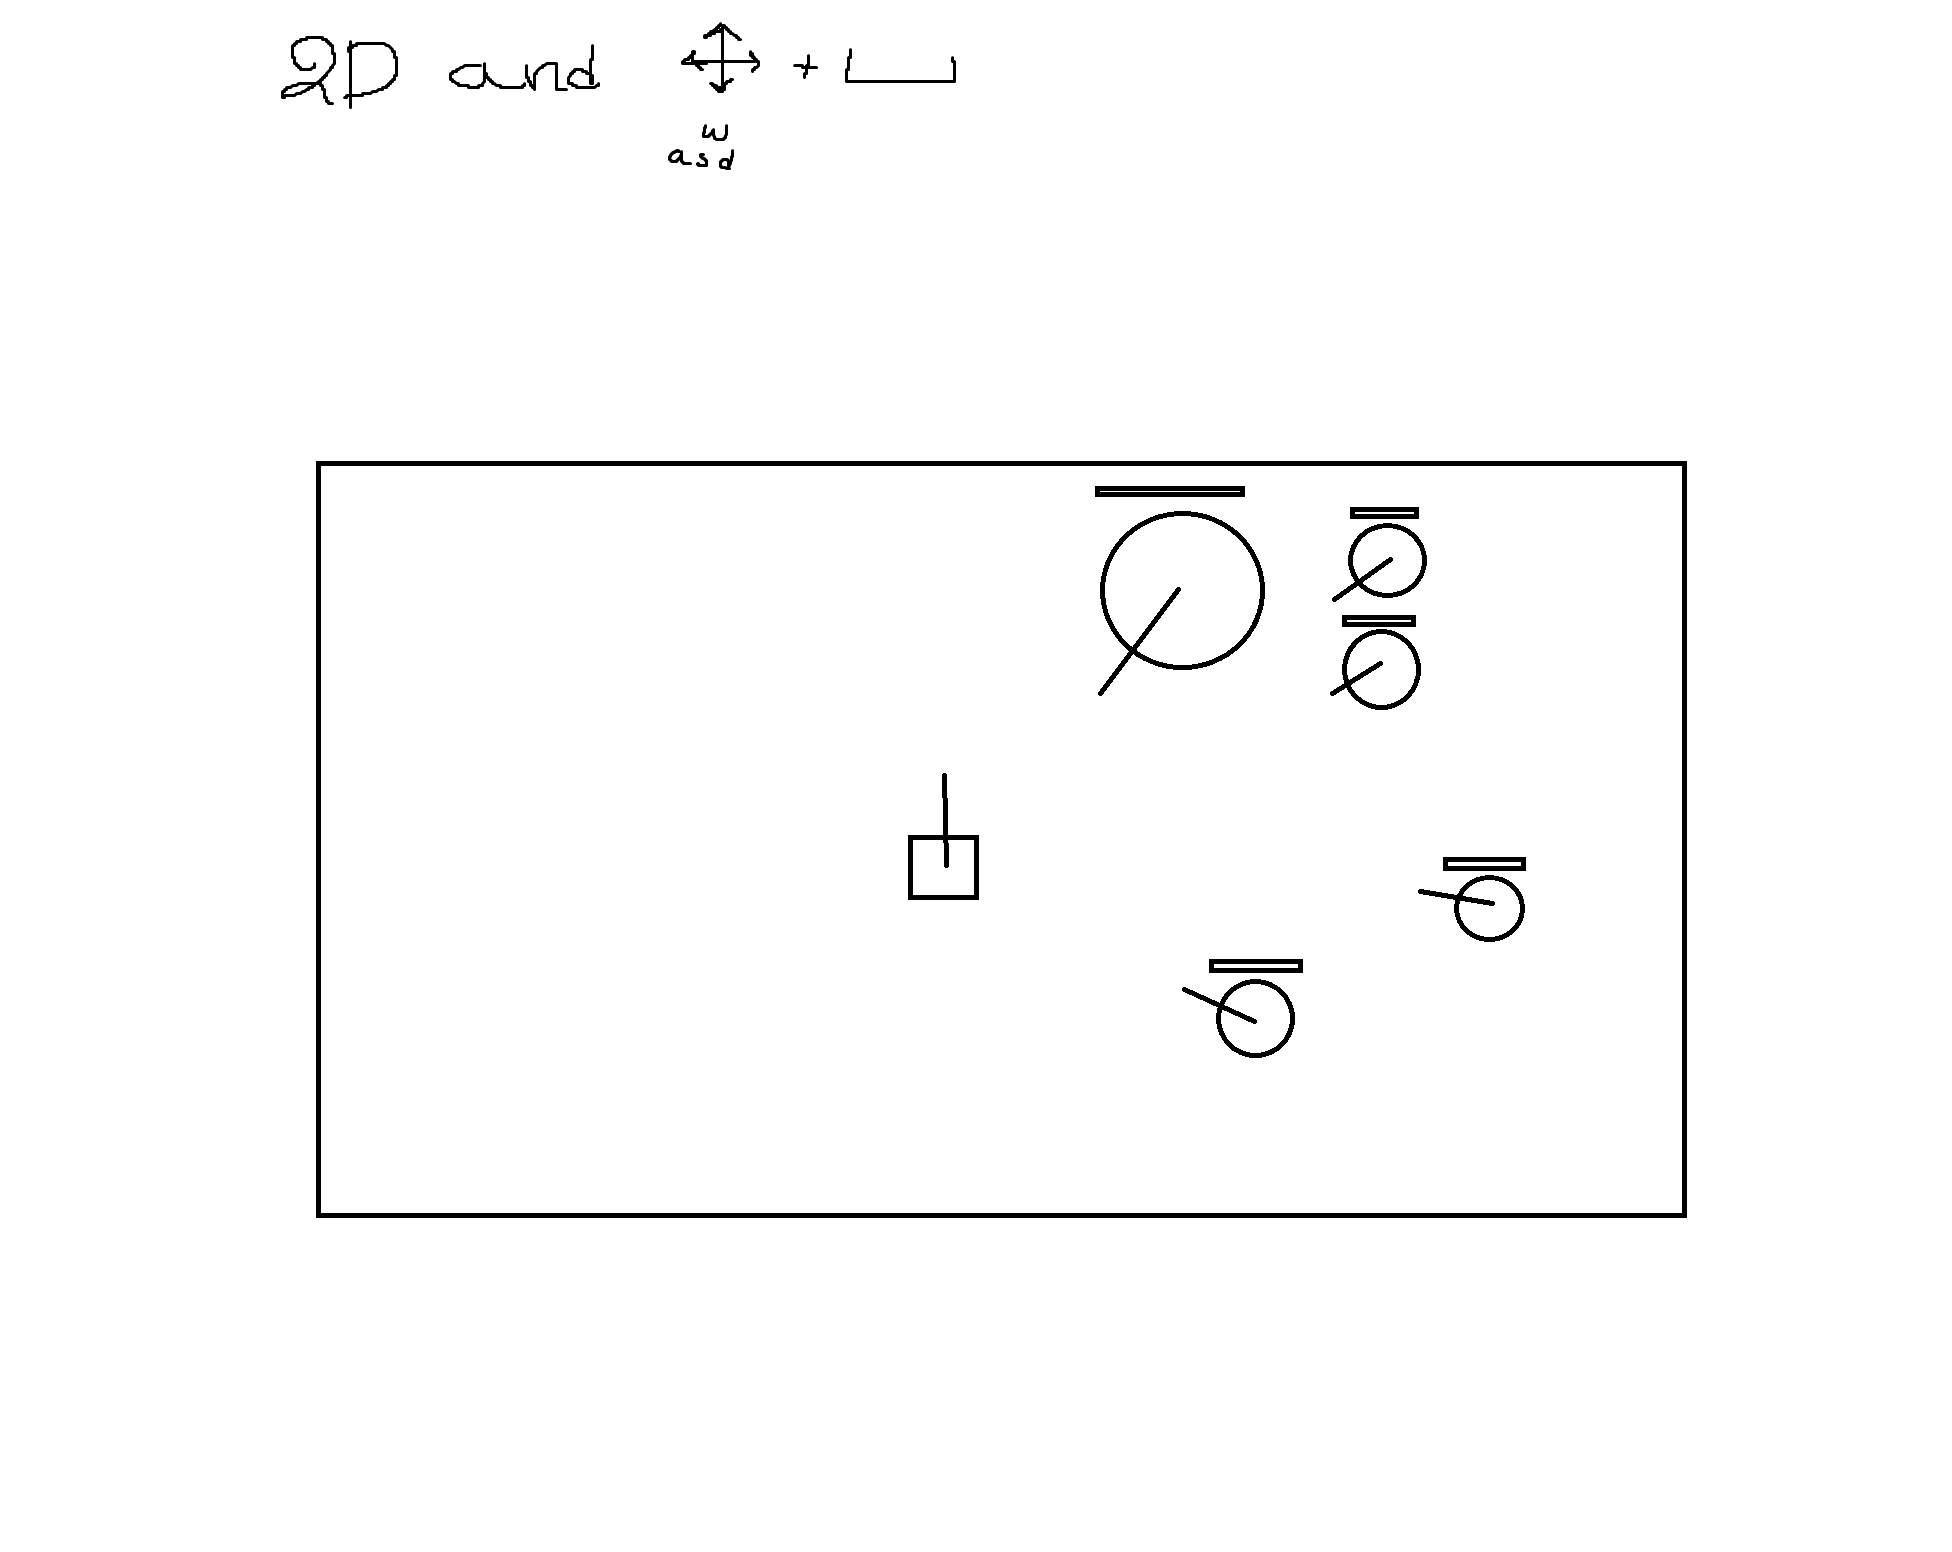 2D and +
w
asd